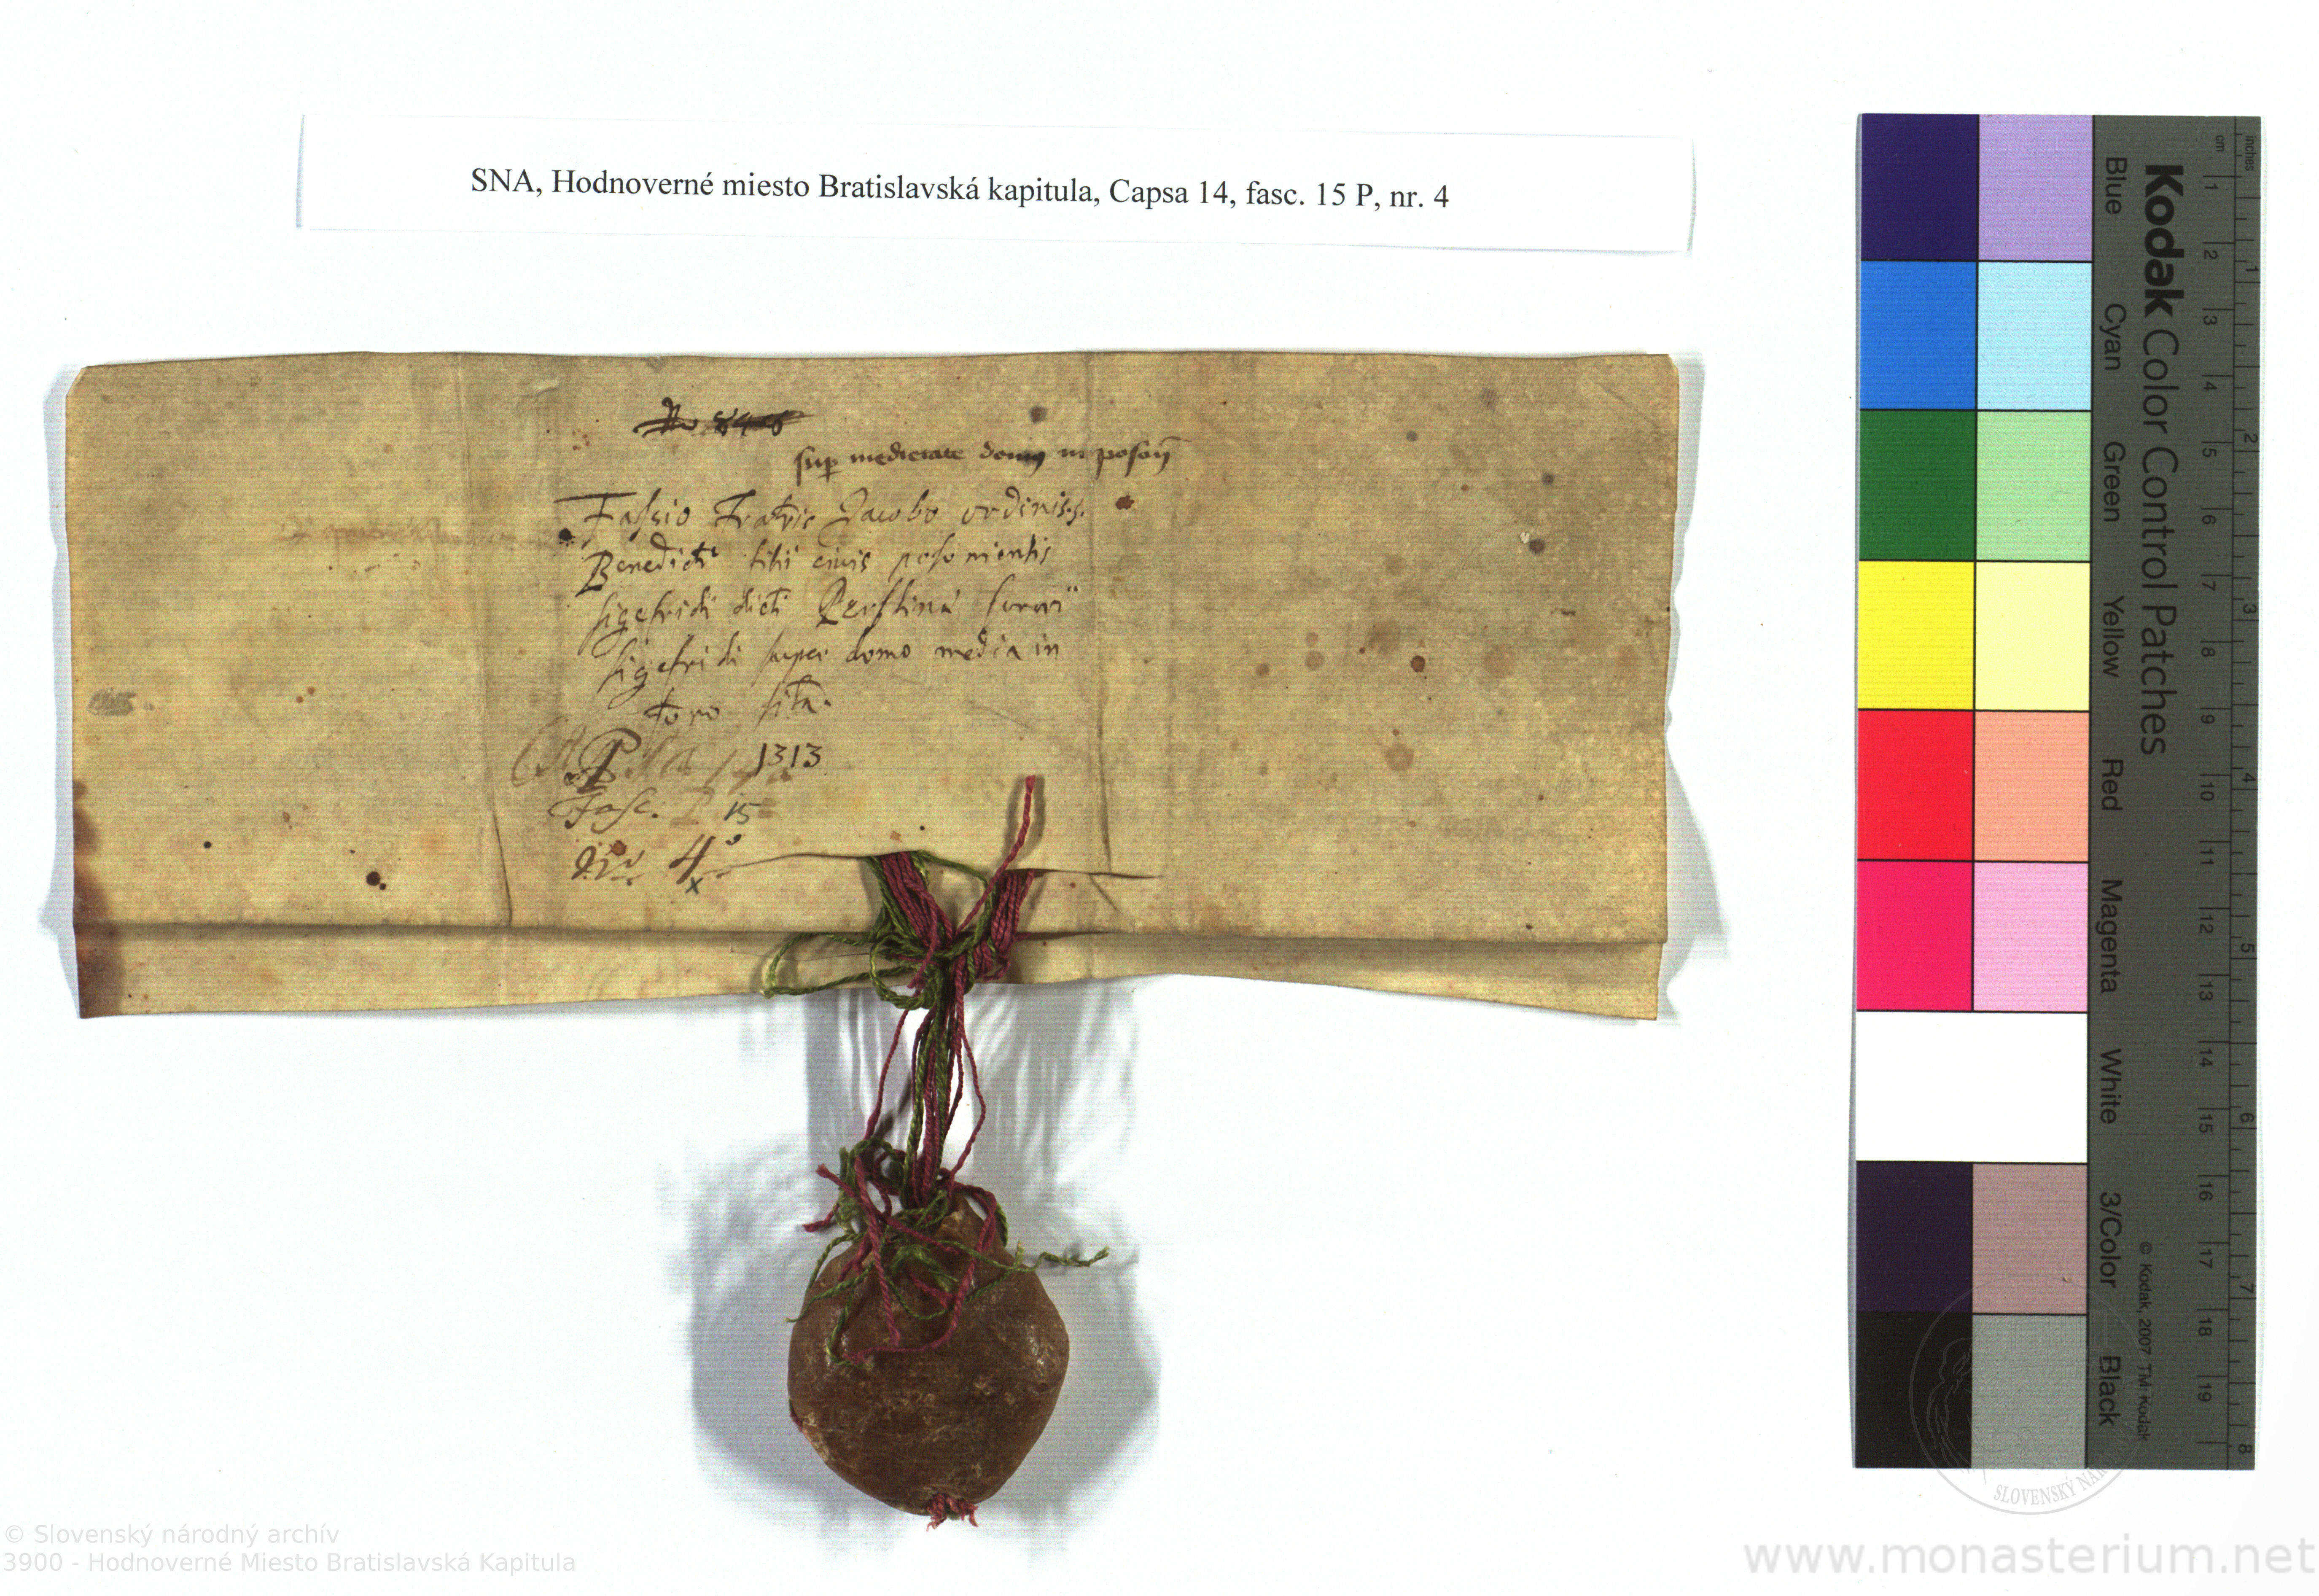 SNA, Hodnoverné miesto Bratislavská kapitula, Capsa 14, fasc. 15 P, nr. 4
No 846
sup medietate domus in poson
Fassio Fratris Jacobo ordinis.s.
Benedicti filii civis posoniensis
sigefridi dicti sororii
sigefridi super domo media in
foro sita.
Capsa 1313
P
Fasc. P 15
No 4
x
Kodak Color Control Patches
Blue Cyan Green Yellow Red Magenta White 3/Color Black
© Kodak, 2007 TM: Kodak
inches 1 2 3 4 5 6 7 8
cm 1 2 3 4 5 6 7 8 9 10 11 12 13 14 15 16 17 18 19
SLOVENSKÝ NÁROD
© Slovenský národný archív
3900 - Hodnoverné Miesto Bratislavská Kapitula
www.monasterium.net